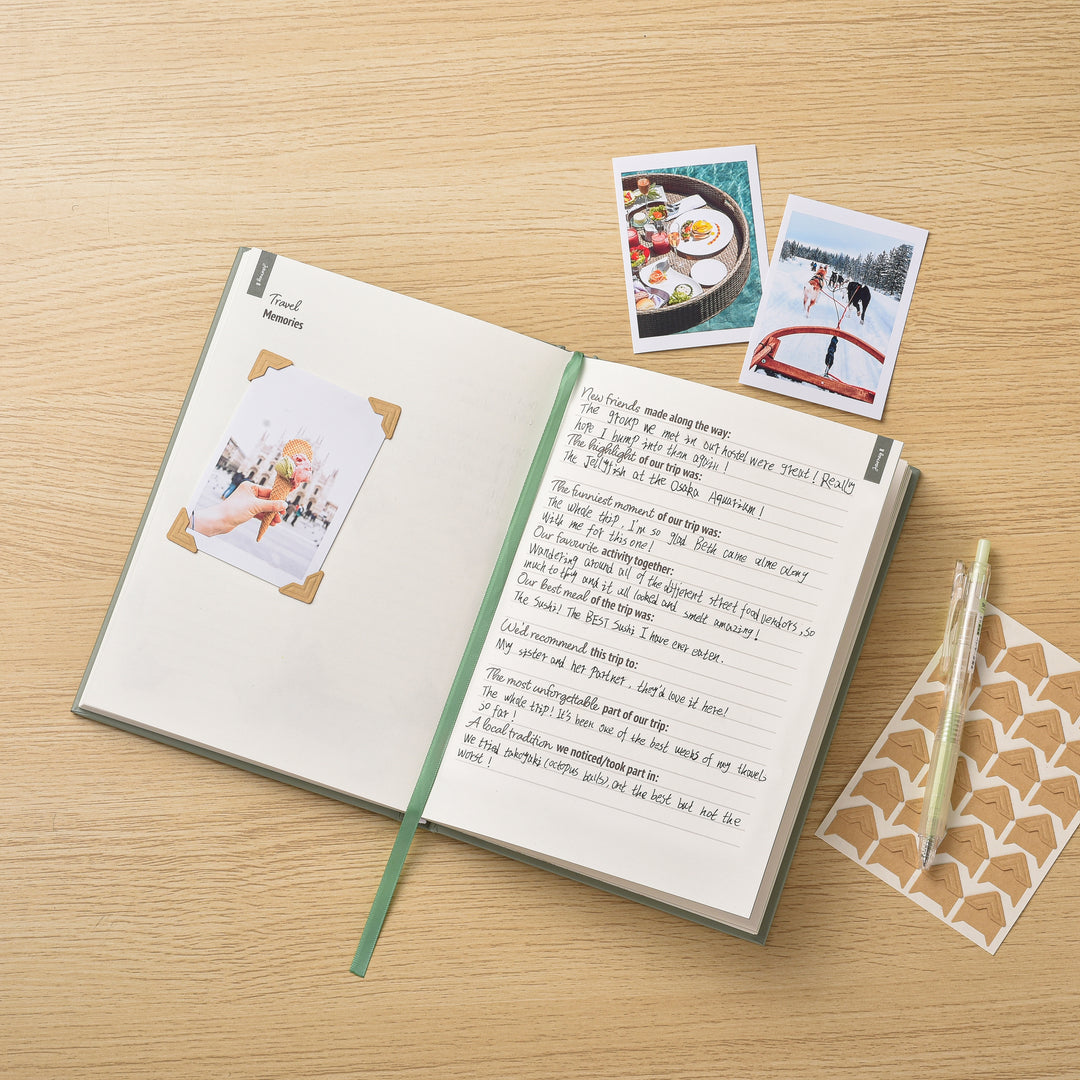 Journey 8
Travel
Memories
New friends made along the way:
The group we met in our hostel were great! Really
hope I bump into then again!
The highlight of our trip was:
The Jellyfish at the Osaka Aquarium!
The funniest moment of our trip was:
The whole trip, I'm so glad Beth came alme along
with me for this one!
Our favourite activity together:
Wandering around all of the different street food vendors, so
much to try and it all looked and smelt amazing!
Our best meal of the trip was:
The Sushi! The BEST Sushi I have ever eaten.
We'd recommend this trip to:
My sister and her Partner, they'd love it here!
The most unforgettable part of our trip:
The whole trip! It's been one of the best weeks of my travels
so far!
A local tradition we noticed/took part in:
We tried takoyaki (octopus balls), ont the best but not the
worst!
Journey 8